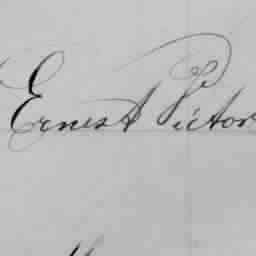 Ernest Victor